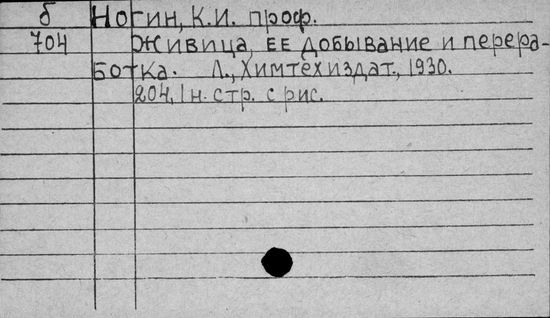 б Ногин, К.И. проф.
704 Живица, ее добывание и перера-
ботка. Л., Химтехиздат., 1930.
204, 1 н. стр. с рис.